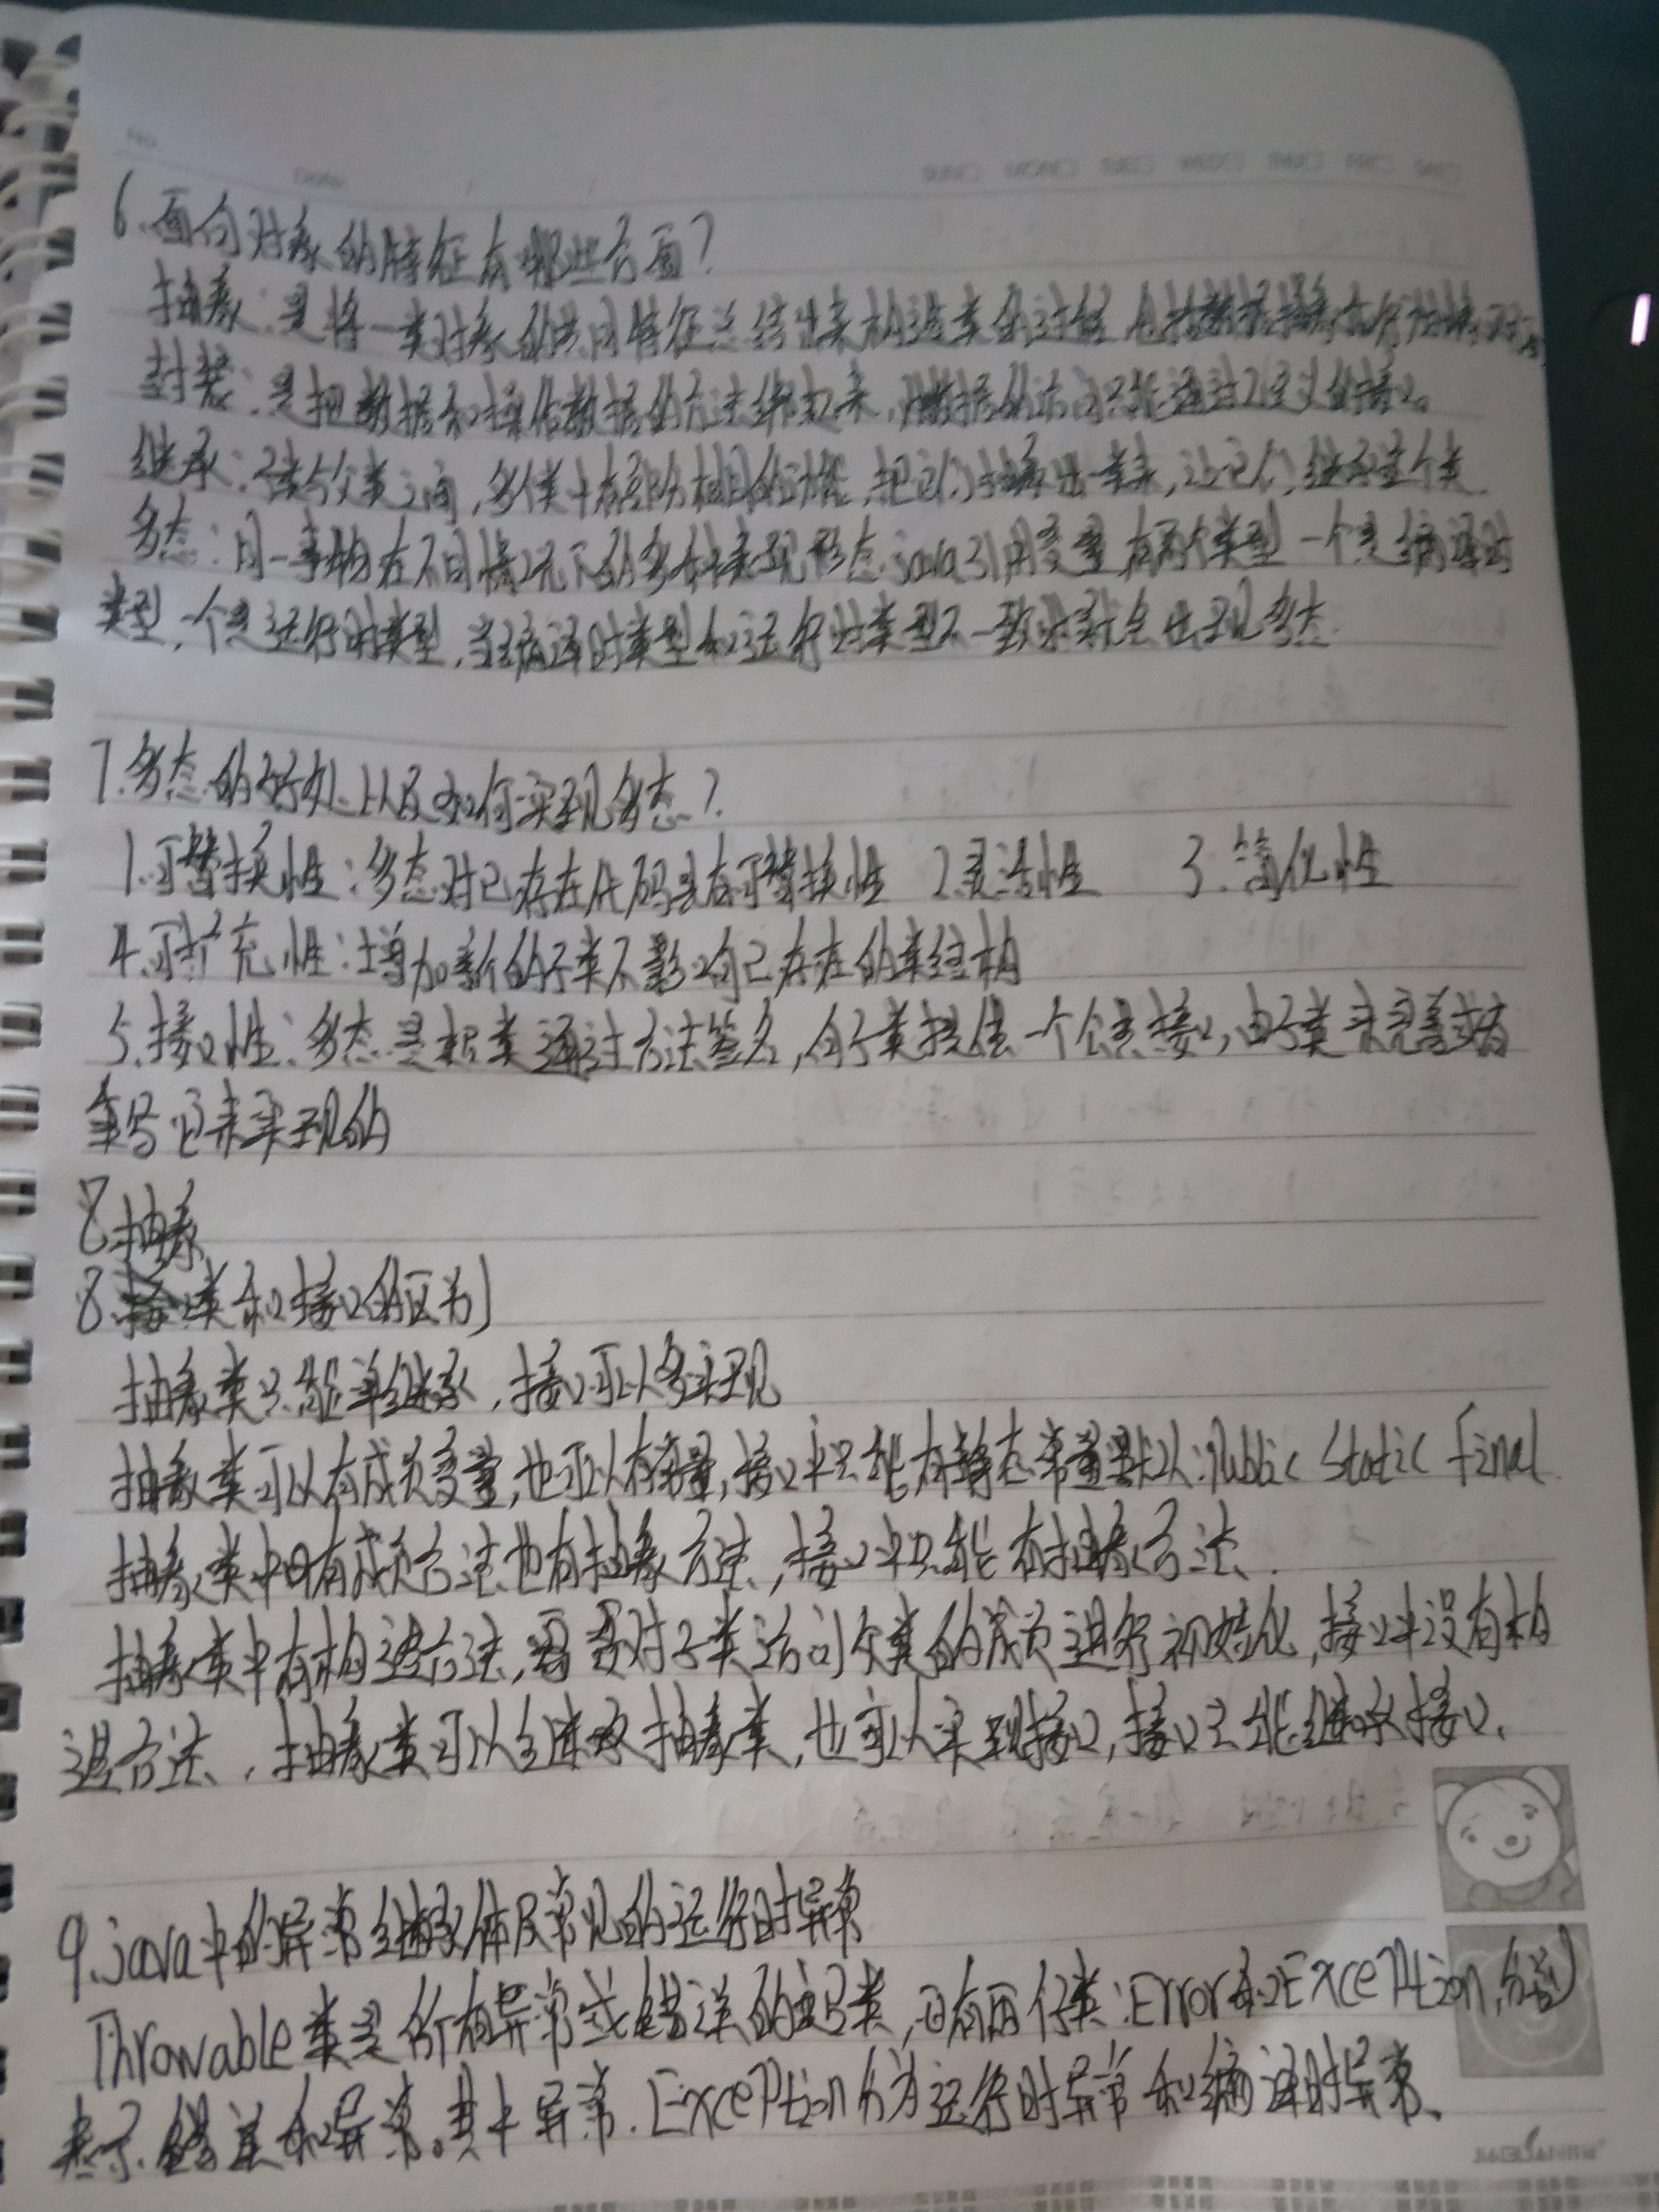 6.面向对象的特征有哪些方面?
抽象:是将一类对象的共同特征总结出来构造类的过程 包括数据抽象和行为抽象
封装:是把数据和操作数据的方法绑起来,对数据的访问只能通过已定义的接口。
继承:子类与父类之间,多个类中有部分相同的功能,把它们抽取出一类来,让它们继承这个类.
多态:同一事物在不同情况下的多种表现形态.java引用变量有两个类型 一个是编译时
类型,一个是运行时类型,当编译时类型和运行时类型不一致时就会出现多态.
7.多态的好处以及如何实现多态?
1.可替换性:多态对已存在代码具有可替换性 2.灵活性 3.简化性
4.可扩充性:增加新的子类不影响已存在的类结构
5.接口性:多态是超类通过方法签名,向子类提供一个公共接口,由子类来完善或者
重写它来实现的
8.抽象
8.类和接口的区别
抽象类只能单继承,接口可以多实现
抽象类可以有成员变量,也可以有常量,接口中只能有静态常量默认:public static final.
抽象类中可有成员方法也有抽象方法,接口中只能有抽象方法.
抽象类中有构造方法,需要对子类访问父类的成员进行初始化,接口中没有构
造方法.抽象类可以继承抽象类,也可以实现接口,接口只能继承接口.
9.java中的异常继承体及常见的运行时异常
Throwable类是所有异常或错误的超类,它有两个子类:Error和Exception,分别
表示错误和异常。其中异常.Exception分为运行时异常和编译时异常.